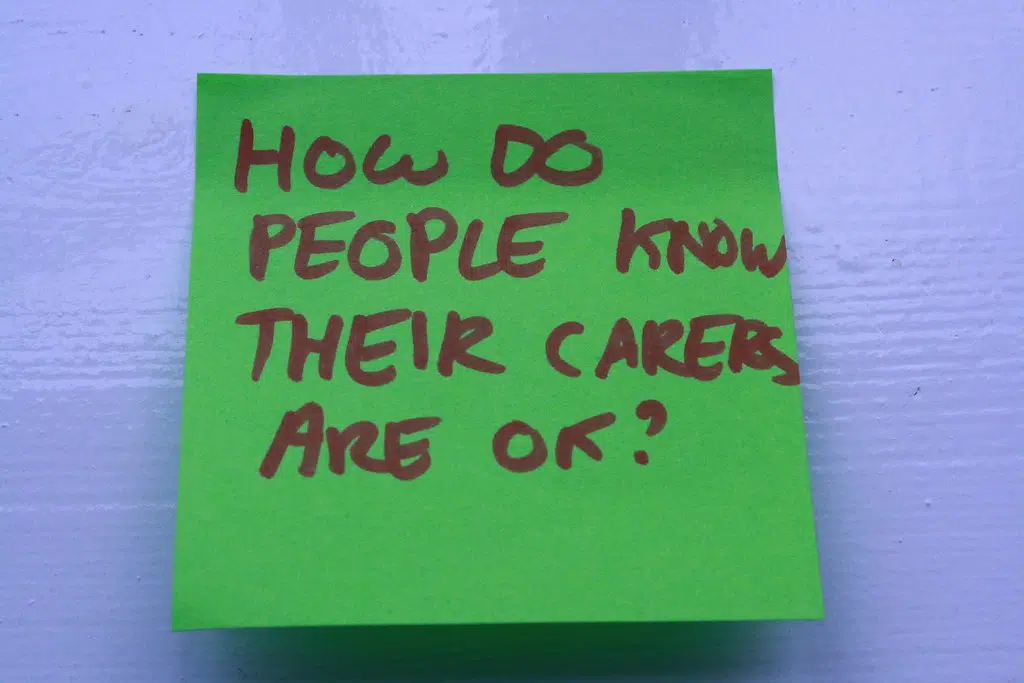 HOW DO
PEOPLE KNOW
THEIR CARERS
ARE OK?